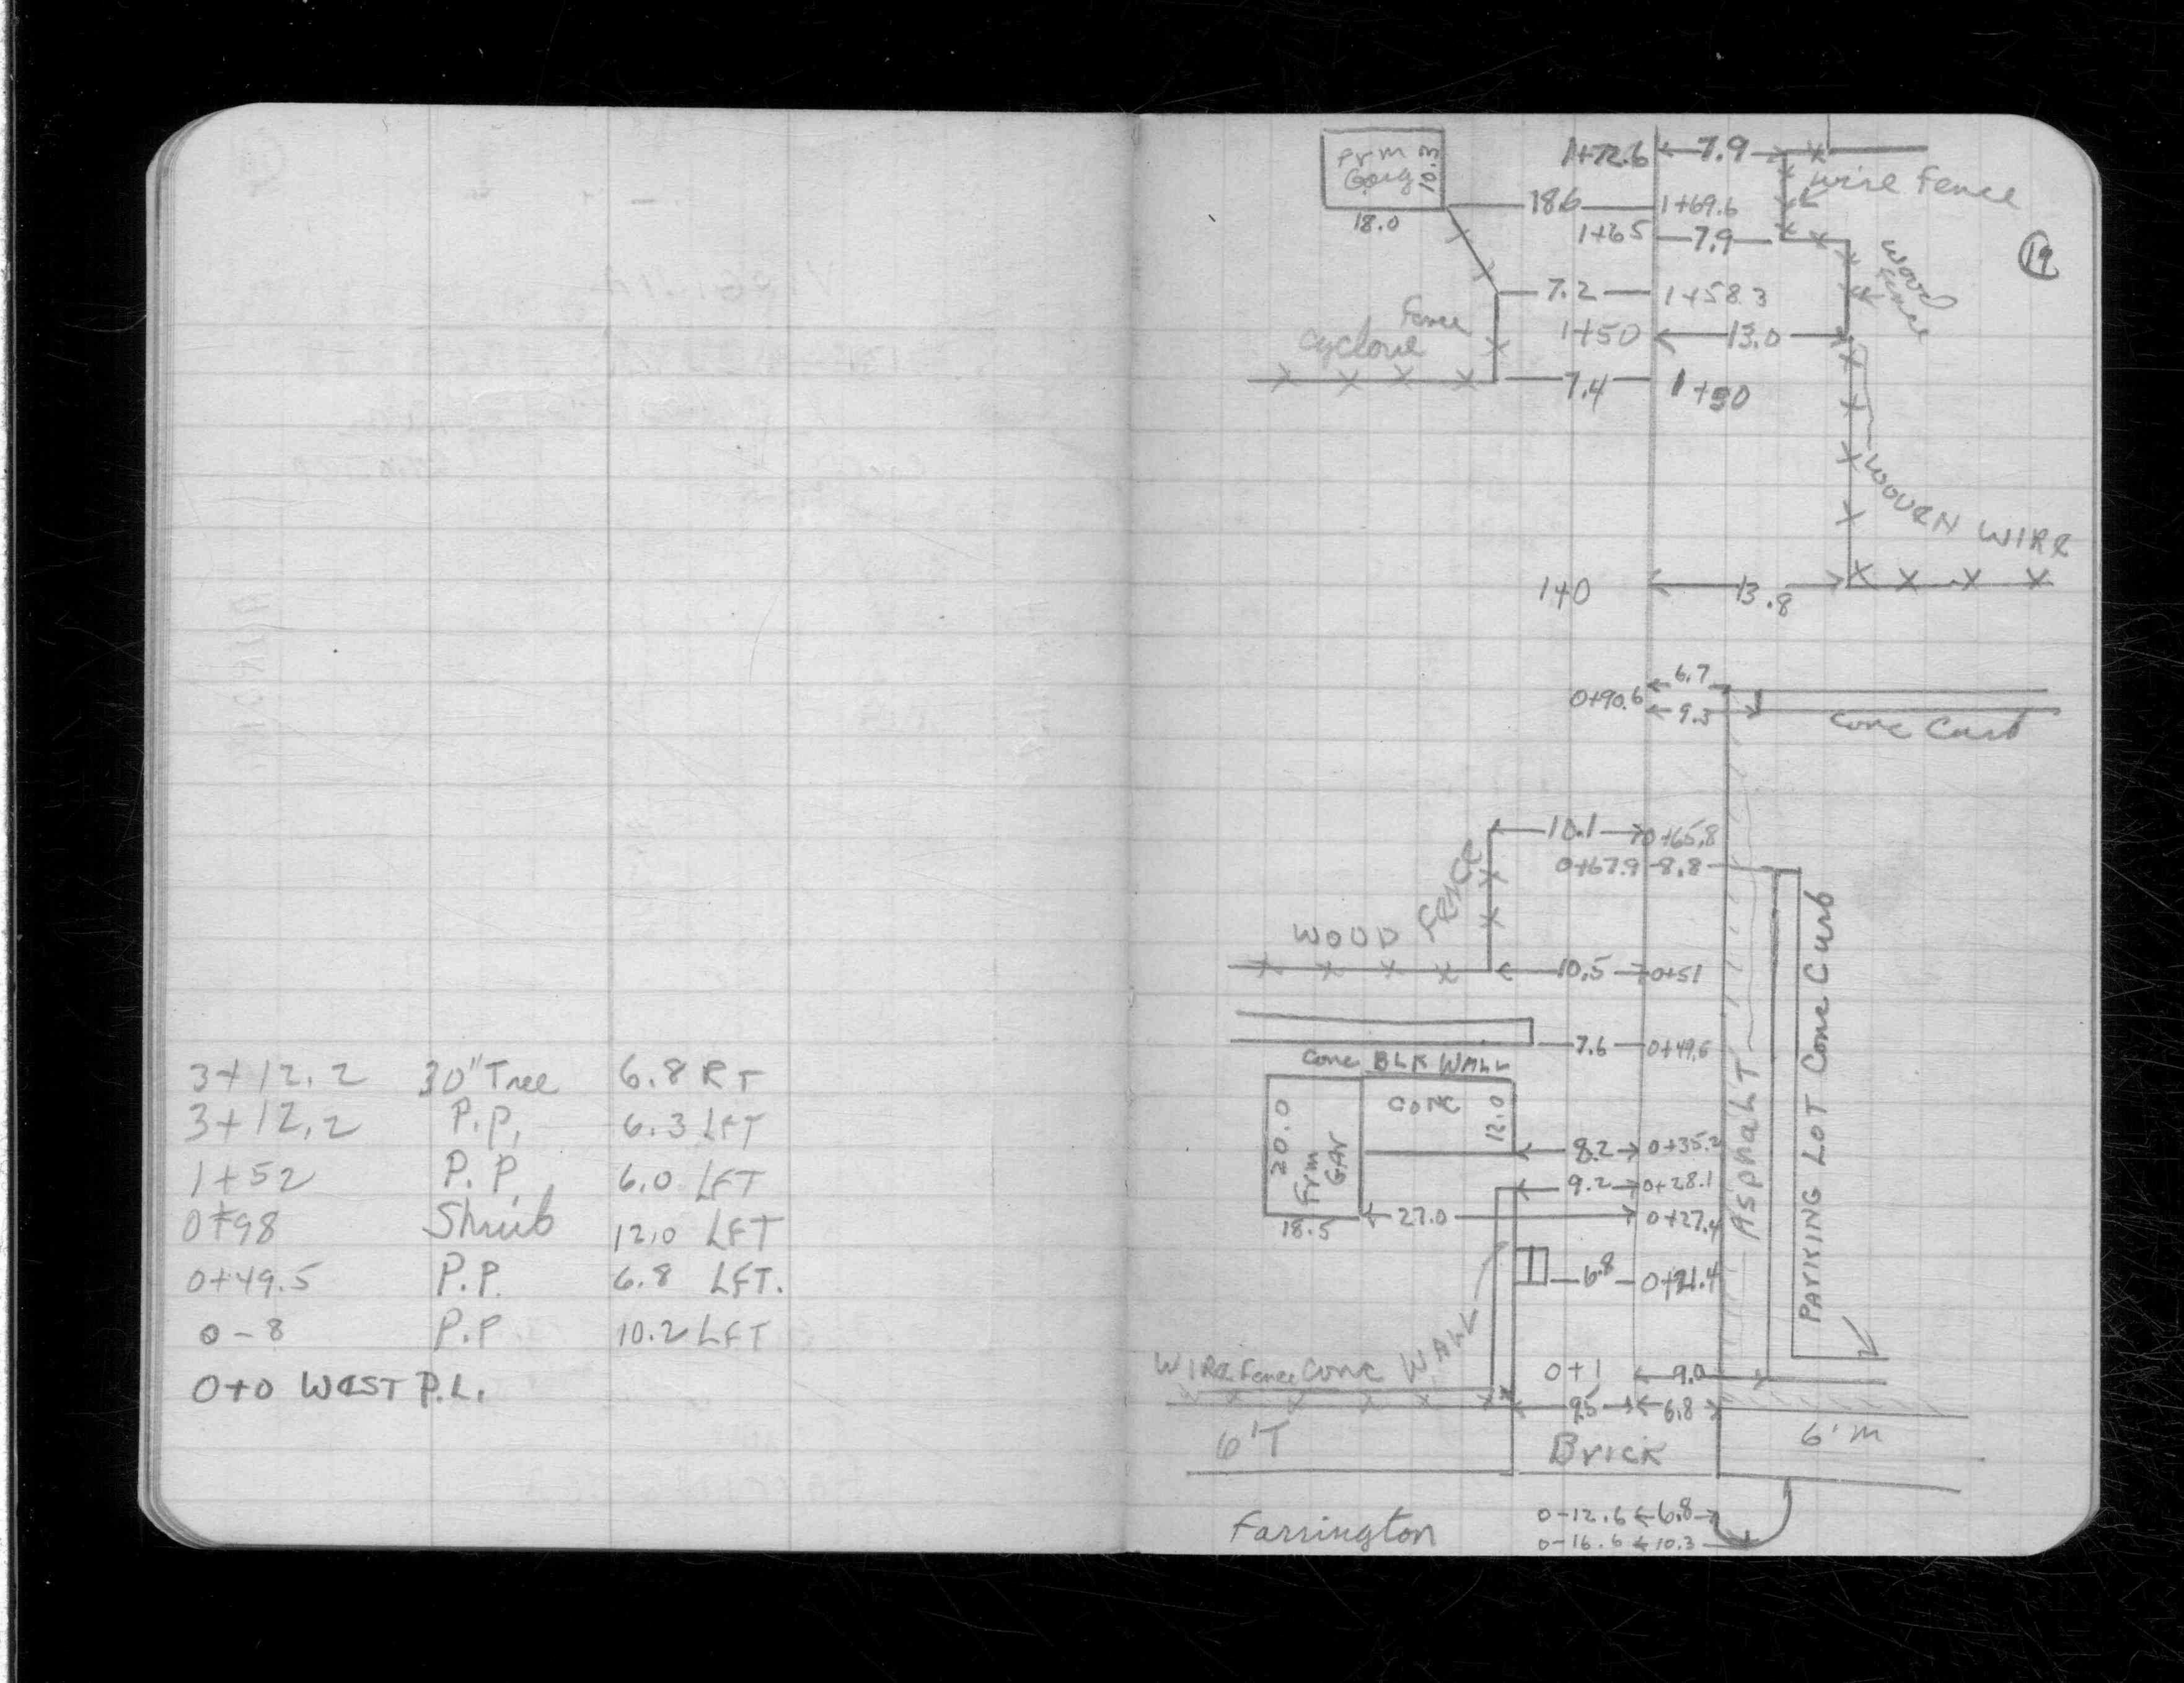 3+12.2 30" Tree 6.8 RT
3+12.2 P.P. 6.3 LFT
1+52 P.P. 6.0 LFT
0+98 Shrub 12.0 LFT
0+49.5 P.P. 6.8 LFT.
0-8 P.P 10.2 LFT
0+0 WEST P.L.
Frm Garg 10.3 1+72.6 7.9
wire Fence
18.0 18.6 1+69.6
1+65 7.9
19
Wood Fence
7.2 1+58.3
Cyclone Fence 1+50 13.0
7.4 1+50
WOVEN WIRE
1+0 13.8
6.7
0+90.6 9.3
Conc Curb
10.1 0+65.8
0+67.9 8.8
WOOD FENCE
10.5 0+51
7.6 0+49.6
Conc BLK WALL
20.0 Frm GAr CONC 12.0
8.2 0+35.2
9.2 0+28.1
18.5 27.0 0+27.4
6.8 0+21.4
AsphaLT
PArKING LOT Conc Curb
WIRE Fence Conc WALL
0+1 9.0
9.5 6.8
6'T Brick 6'm
Farrington
0-12.6 6.8
0-16.6 10.3